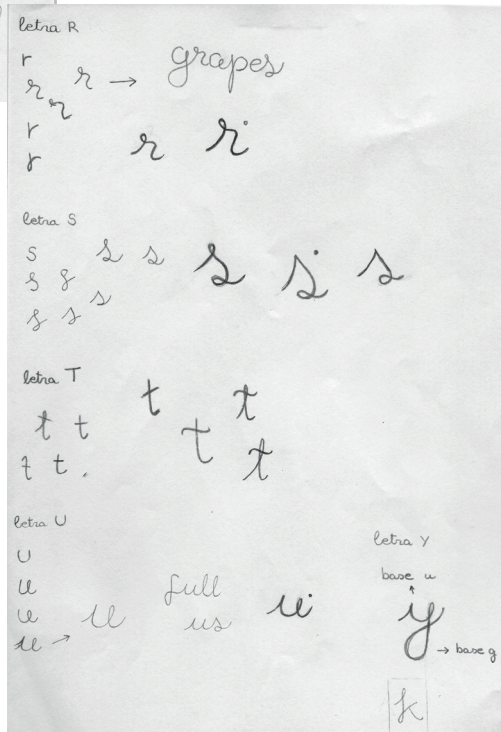 letra R
r
r r → grapes
r
r r r
r
letra S
s s s s s s
s s s
s s s
letra T
t t
t t t t
t t . t
letra U
u
u full
u u us u
u →
letra Y
base u
y
→ base g
k